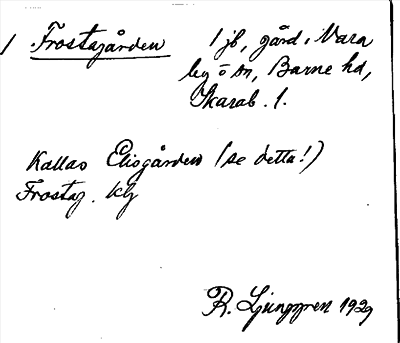 1 Frostagården 1 jb, gård i Vara
by o sn, Barne hd,
Skarab. l.
Kallas Elisgården (se detta!)
Frostag. Kbj
R. Ljunggren 1929